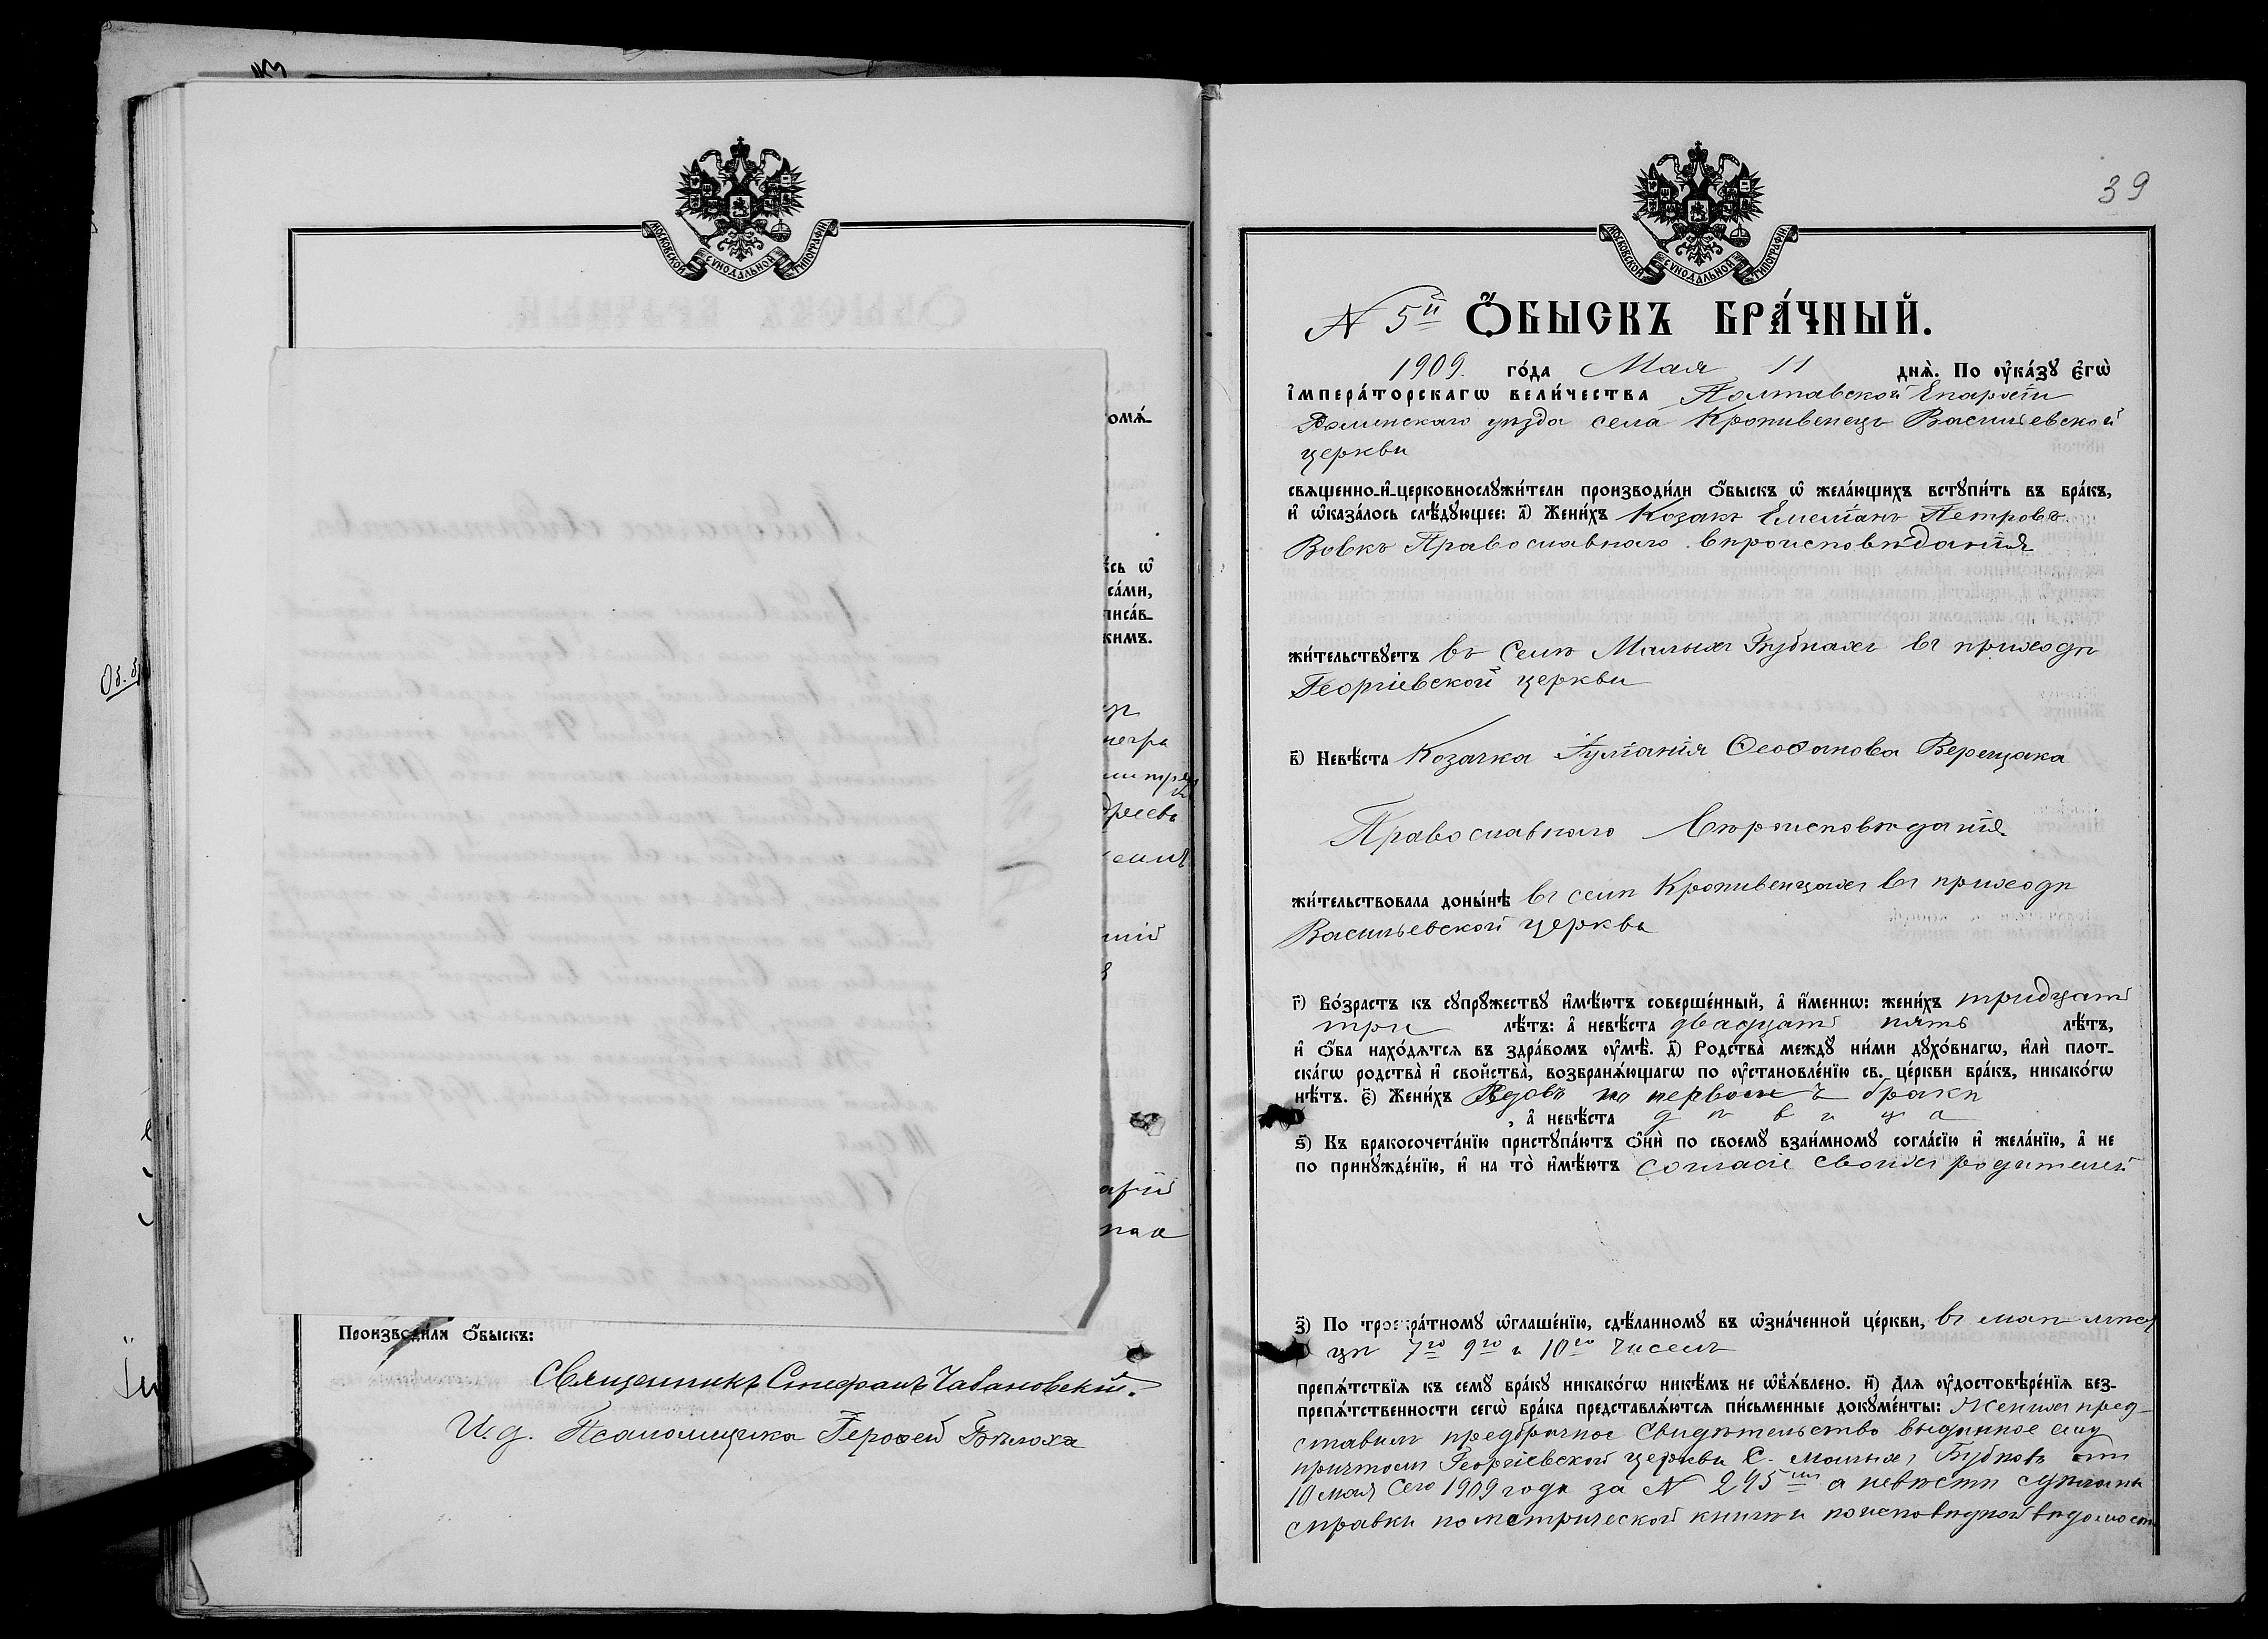 Московской Сѵнодальной Типографіи
ома́-
ѣсь ѡ҆
са́ми,
писа́в-
кимъ.
Произво́дили ѻ҆́быскъ:
Священникъ Стефанъ Чабановскій.
И. д. Псаломщика Герофей Бѣлоха
39
Московской Сѵнодальной Типографіи
N 5й Ѻ҆БЫСКЪ БРА́ЧНЫЙ.
1909. го́да Мая 11 днѧ̀. По ᲂу҆ка́зꙋ є҆гѡ̀
і҆мпера́торскагѡ вели́чества Полтавской Епархіи
Роменскаго уѣзда села Кропивенецъ Васильевской
церкви
свѧще́нно-и҆-церковнослꙋжи́тели производи́ли ѻ҆́быскъ ѡ҆ жела́ющихъ встꙋпи́ть въ бра́къ,
и҆ ѡ҆каза́лось слѣ́дꙋющее: а҃) Жени́хъ Козакъ Емеліанъ Петровъ
Вовкъ Православнаго вѣроисповѣданія
жи́тельствꙋетъ въ селѣ Малыхъ Бубнахъ въ приходѣ
Георгіевской церкви
в҃) Невѣ́ста Козачка Іуліанія Ѳеофанова Верещака
Православнаго вѣроисповѣданія
жи́тельствовала доны́нѣ въ селѣ Кропивенцахъ въ приходѣ
Васильевской церкви
г҃) Во́зрастъ къ сꙋпрꙋ́жествꙋ и҆мѣ́ютъ соверше́нный, а҆ и҆́меннѡ: жени́хъ тридцать
три лѣ́тъ: а҆ невѣ́ста двадцать пять лѣ́тъ,
и҆ ѻ҆́ба нахо́дѧтсѧ въ здра́вомъ ᲂу҆мѣ̀. д҃) Родства̀ междꙋ̀ ни́ми дꙋхо́внагѡ, и҆лѝ плот-
ска́гѡ родства̀ и҆ сво́йства̀, возбранѧ́ющагѡ по ᲂу҆становле́нїю св. це́ркви бра́къ, никако́гѡ
нѣ́тъ. є҃) Жени́хъ Вдовъ по первомъ бракѣ
, а҆ невѣ́ста дѣвица
ѕ҃) Къ бракосочета́нїю пристꙋпа́ютъ ѻ҆нѝ по своемꙋ̀ взаи́мномꙋ согла́сїю и҆ жела́нїю, а҆ не
по принꙋжде́нїю, и҆ на то̀ и҆мѣ́ютъ согласіе своихъ родителей
з҃) По троекра́тномꙋ ѡ҆глаше́нїю, сдѣ́ланномꙋ въ ѡ҆зна́ченной це́ркви, въ маѣ мѣся
цѣ 7го 9го и 10го чиселъ
препѧ́тствїѧ къ семꙋ̀ бра́кꙋ никако́гѡ никѣ́мъ не ѡ҆б̾ѧ́влено. и҃) Длѧ ᲂу҆достовѣре́нїѧ без-
препѧ́тственности сегѡ̀ бра́ка представлѧ́ютсѧ пи́сьменные докꙋме́нты: Женихъ пред-
ставилъ предбрачное свидѣтельство выданное ему
причтомъ Георгіевской церкви С. Малыхъ Бубновъ отъ
10 мая сего 1909 года за N 295 а невѣсти сдѣланы
справки по метрической книгѣ и по исповѣдной вѣдомости